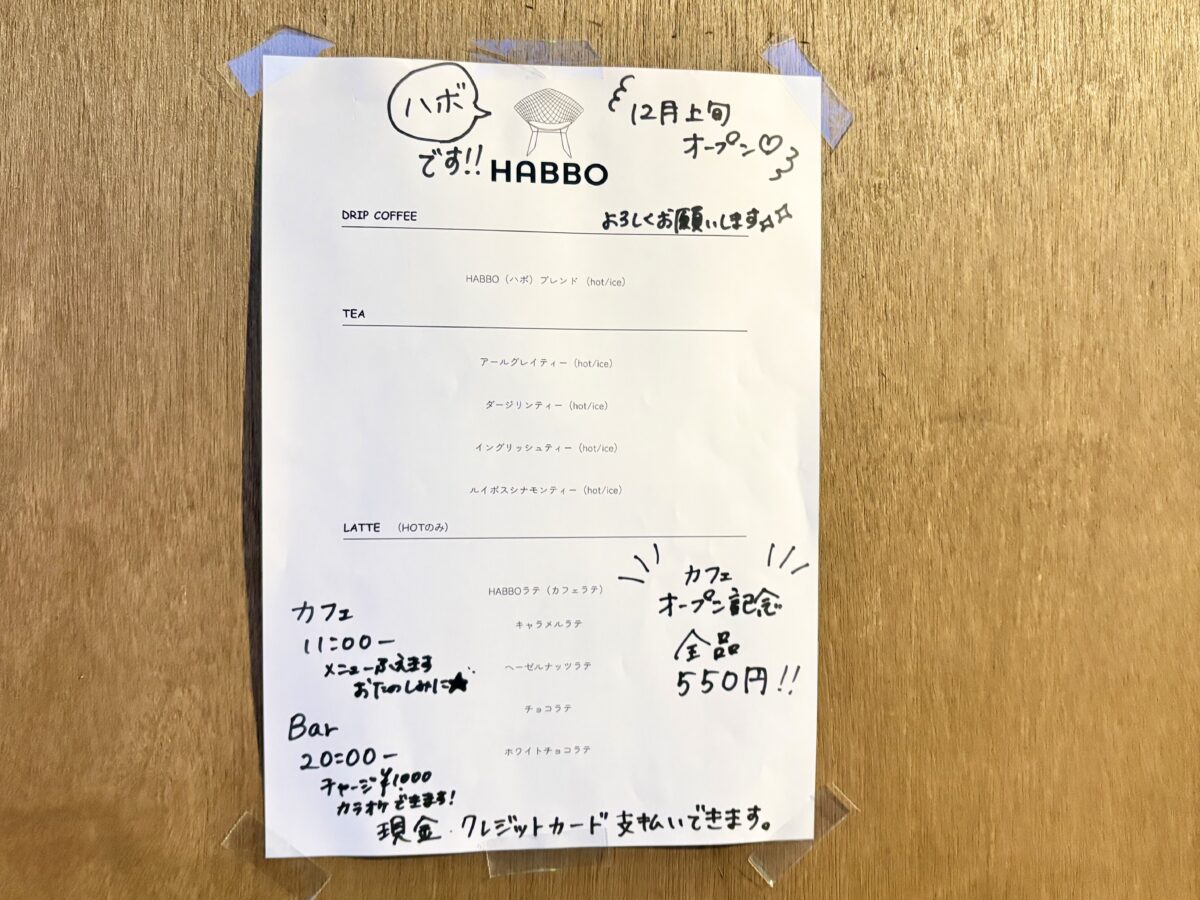 ハボ
です!!
HABBO
12月上旬
オープン♡
DRIP COFFEE
よろしくお願いします☆☆
HABBO（ハボ）ブレンド（hot/ice）
TEA
アールグレイティー（hot/ice）
ダージリンティー（hot/ice）
イングリッシュティー（hot/ice）
ルイボスシナモンティー（hot/ice）
LATTE （HOTのみ）
HABBOラテ（カフェラテ）
キャラメルラテ
ヘーゼルナッツラテ
チョコラテ
ホワイトチョコラテ
カフェ
オープン記念
全品
550円!!
カフェ
11:00ー
メニューふえます
おたのしみに★
Bar
20:00ー
チャージ¥1,000
カラオケできます!
現金・クレジットカード支払いできます。